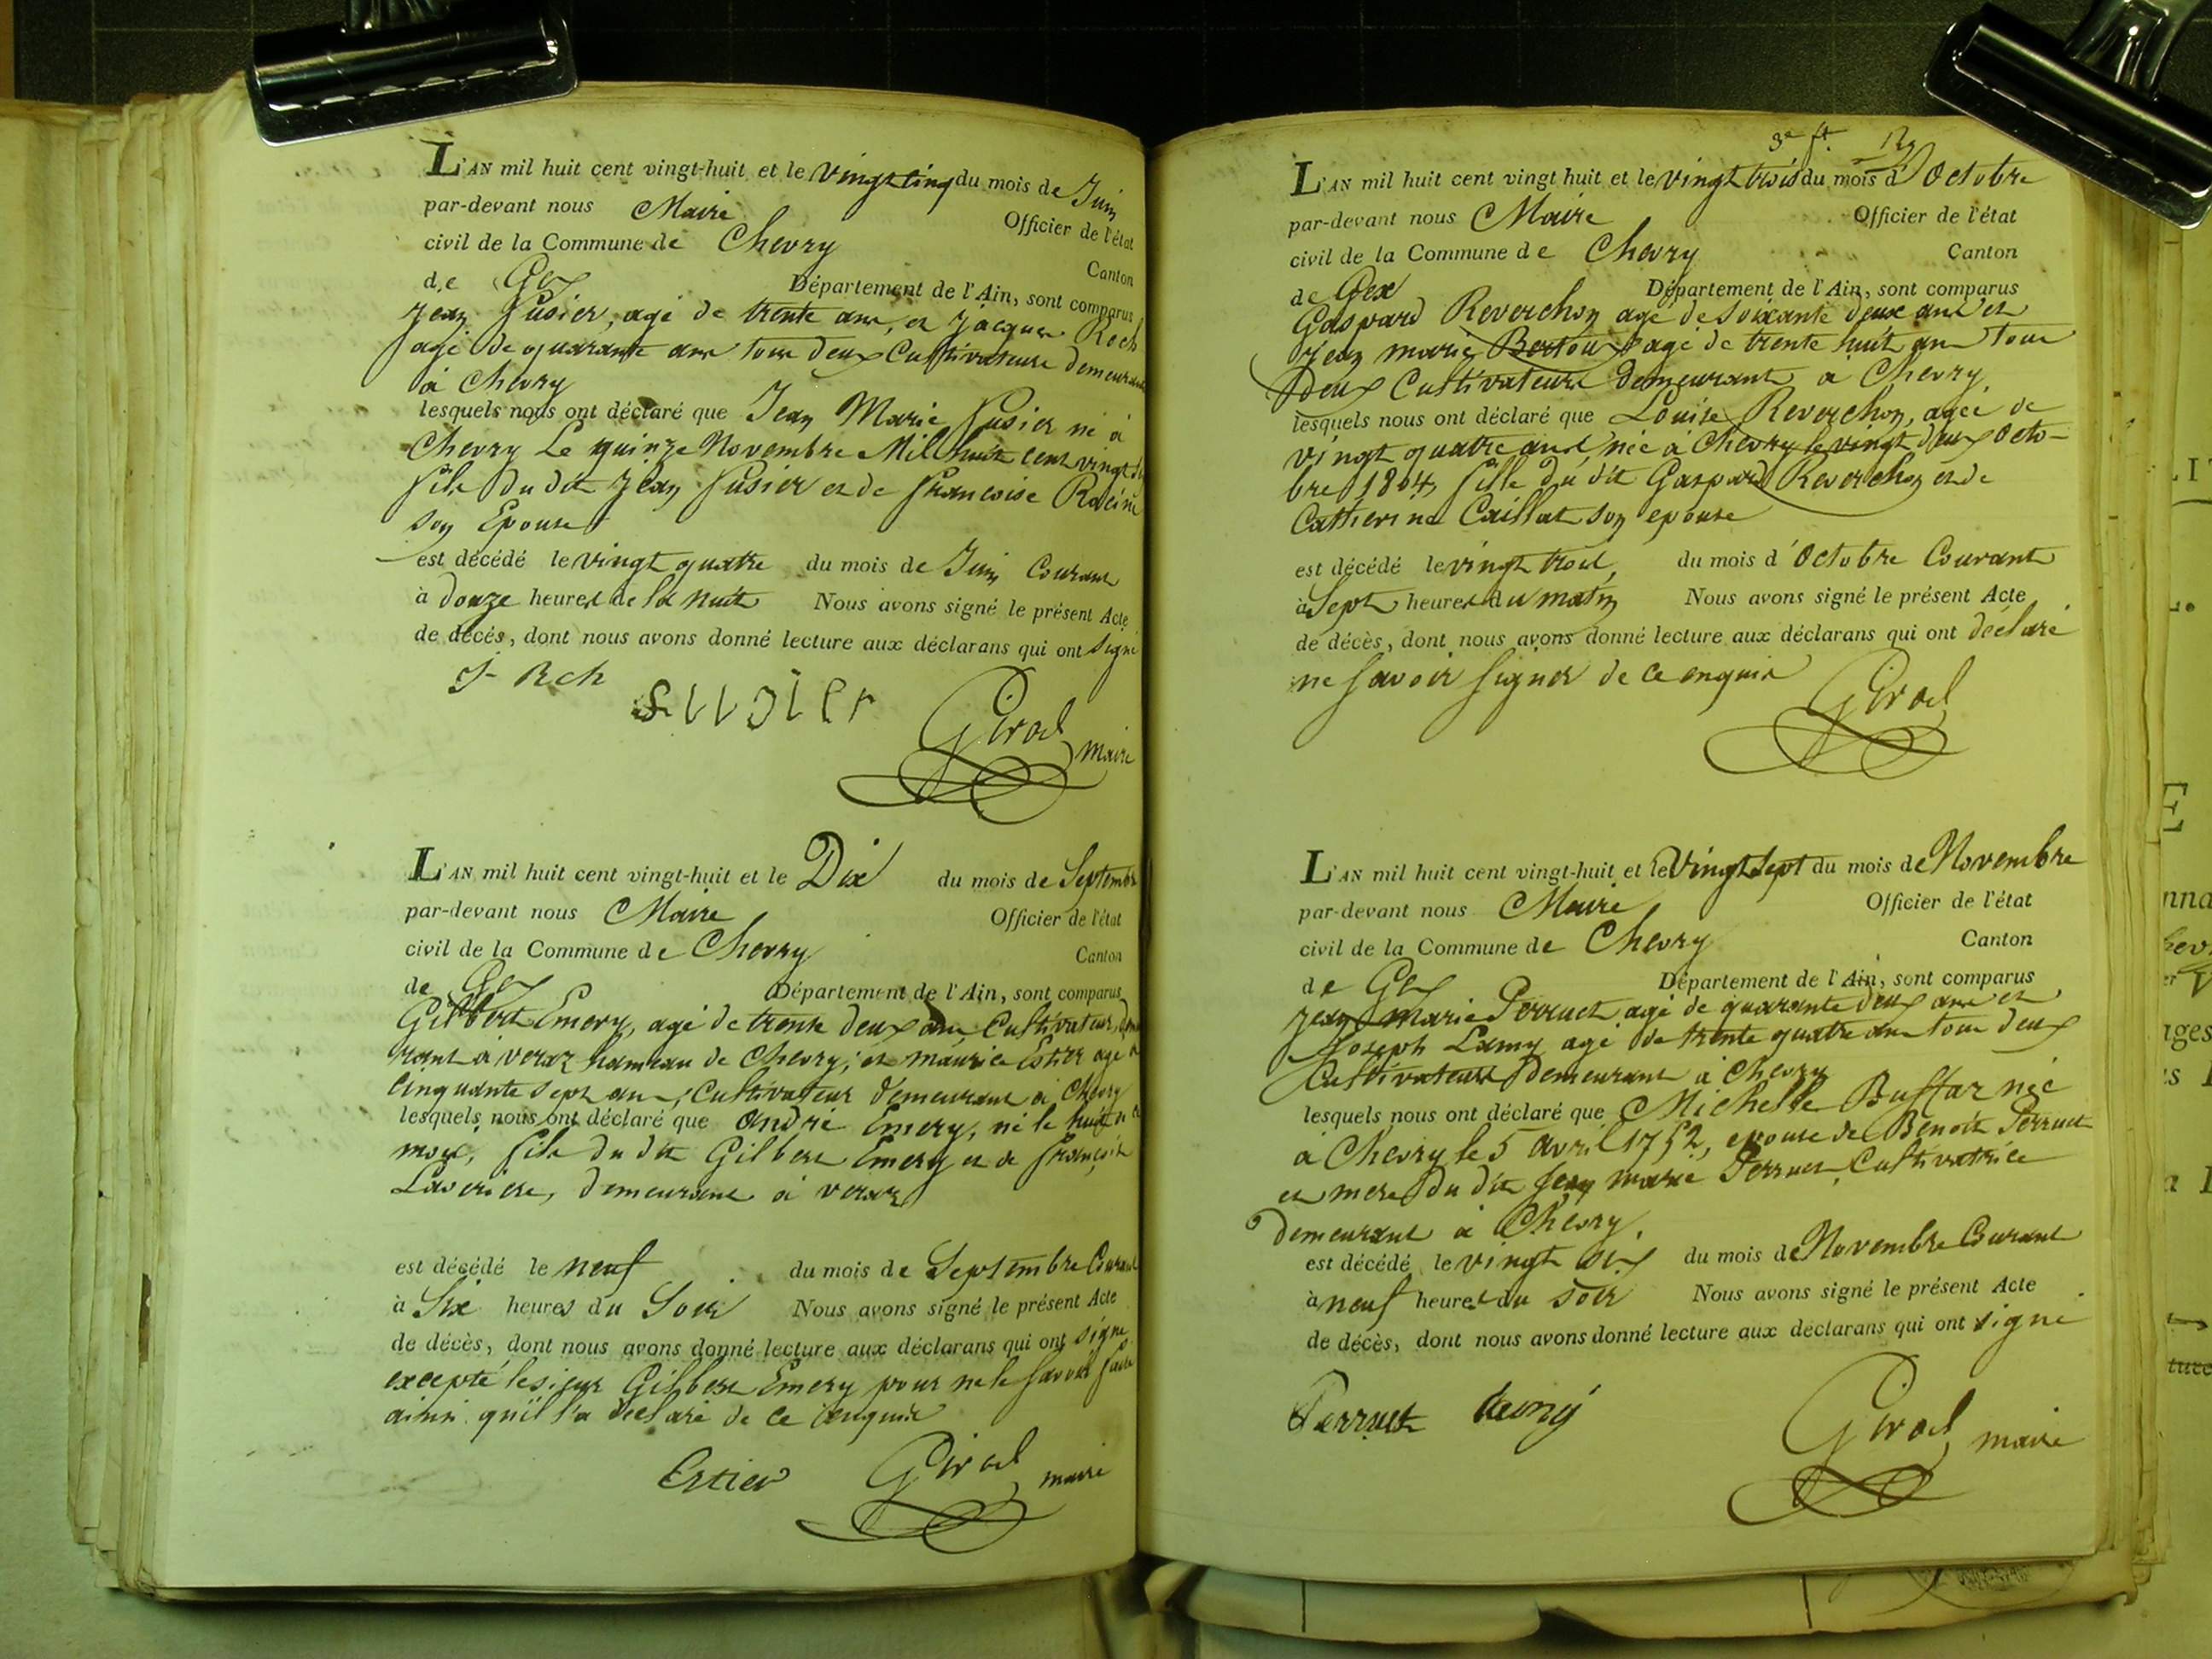 L'AN mil huit cent vingt-huit et le vingt cinq du mois de Juin
par-devant nous Maire Officier de l'état
civil de la Commune de Chevry Canton
de Gex Département de l'Ain, sont comparus
Jean Susier, agé de trente ans, et Jacques Roch
agé de quarante ans tous deux Cultivateurs demeurant
à Chevry
lesquels nous ont déclaré que Jean Marie Susier né à
Chevry Le quinze Novembre Mil huit cent vingt
fils du dit Jean Susier et de francoise Racine
son Epouse
est décédé le vingt quatre du mois de Juin Courant
à douze heures de la nuit Nous avons signé le présent Acte
de décés, dont nous avons donné lecture aux déclarans qui ont signé
J- Rch
Girod maire
L'AN mil huit cent vingt-huit et le Dix du mois de Septembre
par-devant nous Maire Officier de l'état
civil de la Commune de Chevry Canton
de Gex Département de l'Ain, sont comparus
Gilbert Emery, agé de trente deux ans Cultivateur,
rant à veraz hameau de Chevry; et maurice Estier agé
cinquante sept ans, Cultivateur demeurant à Chevry
lesquels nous ont déclaré que andré Emery, né le huit
mois, fils du dit Gilbert Emery et de françoise
Laveriere, demeurant à veraz
est décédé le neuf du mois de Septembre Courant
à Six heures du Soir Nous avons signé le présent Acte
de décès, dont nous avons donné lecture aux déclarans qui ont signé
excepté le sieur Gilbert Emery pour ne le savoir faire
ainsi qu'il l'a declaré de ce enquis
Estier Girod maire
3e ft.
L'AN mil huit cent vingt huit et le vingt trois du mois d'Octobre
par-devant nous Maire Officier de l'état
civil de la Commune de Chevry Canton
de Gex Département de l'Ain, sont comparus
Gaspard Reverchon agé de soixante deux ans et
Jean marie agé de trente huit ans tous
deux Cultivateurs demeurant à Chevry,
lesquels nous ont déclaré que Louise Reverchon, agée de
vingt quatre ans née à Chevry le vingt deux octo-
bre 1804 fille du dit Gaspard Reverchon et de
Catherine Caillat son epouse
est décédé le vingt trois, du mois d'Octobre Courant
à Sept heures du matin Nous avons signé le présent Acte
de décès, dont nous avons donné lecture aux déclarans qui ont déclaré
ne savoir signer de ce enquis
Girod
L'AN mil huit cent vingt-huit et le Vingt Sept du mois de Novembre
par-devant nous Maire Officier de l'état
civil de la Commune de Chevry Canton
de Gex Département de l'Ain, sont comparus
Jean Marie Perruet agé de quarante deux ans et
Joseph Lamy agé de trente quatre ans tous deux
Cultivateurs demeurant à Chevry
lesquels nous ont déclaré que Michelle Buffaz née
à Chevry le 5 avril 1752, epouse de Benoit Perruet
et mere du dit Jean marie Perruet Cultivatrice
demeurant à Chevry,
est décédé le vingt six du mois de Novembre Courant
à neuf heures du soir Nous avons signé le présent Acte
de décès, dont nous avons donné lecture aux déclarans qui ont signé
Perruet
Girod maire